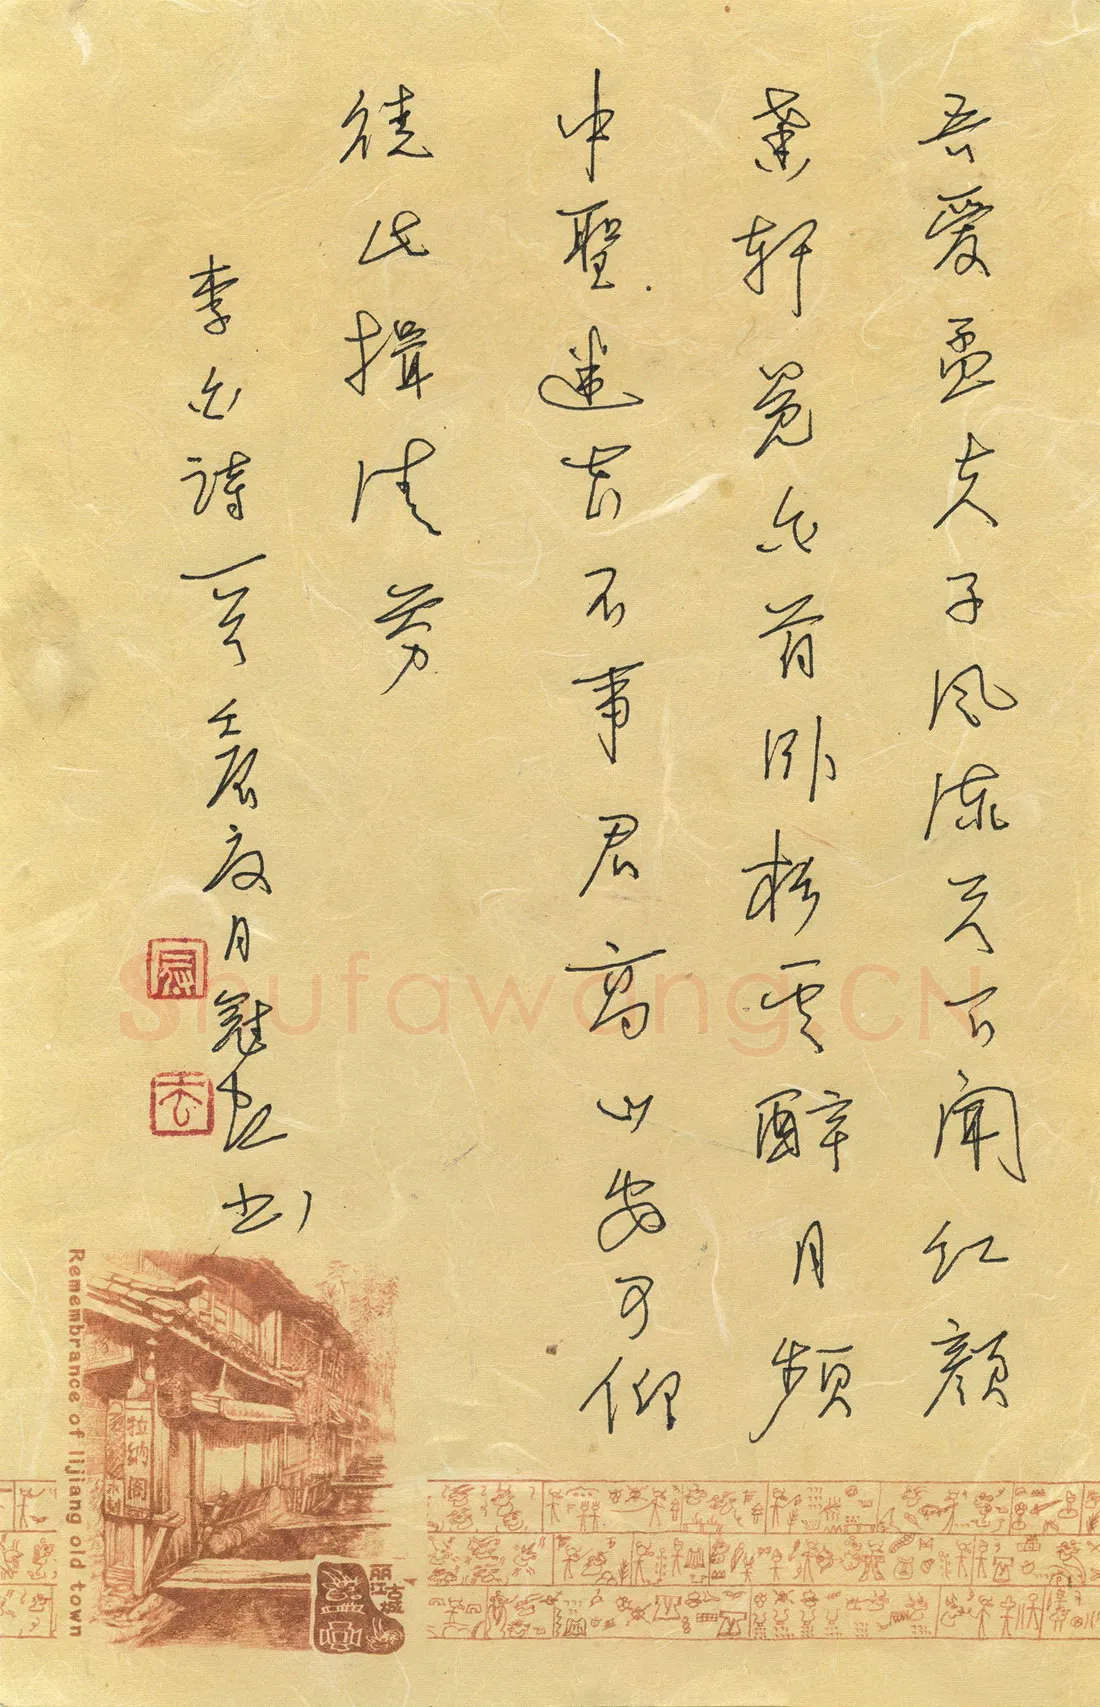 吾爱孟夫子风流天下闻红颜
弃轩冕白首卧松云醉月频
中聖迷花不事君高山安可仰
徒此揖清芬
李白詩一首
月
书
Shufawang.CN
Remembrance of lijiang old town
拉纳阁
丽江古城